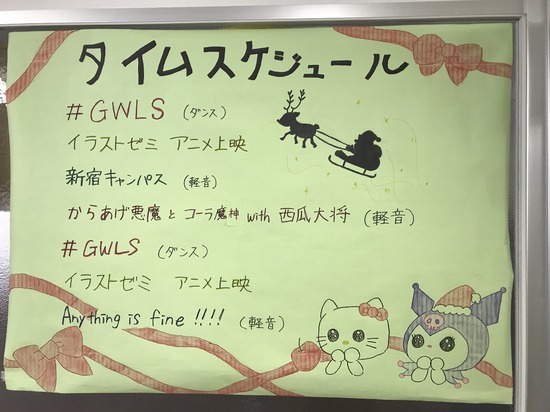 タイムスケジュール
#GWLS (ダンス)
イラストゼミ アニメ上映
新宿キャンパス (軽音)
からあげ悪魔と コーラ魔神 with 西瓜大将 (軽音)
#GWLS (ダンス)
イラストゼミ アニメ上映
Anything is fine !!!! (軽音)